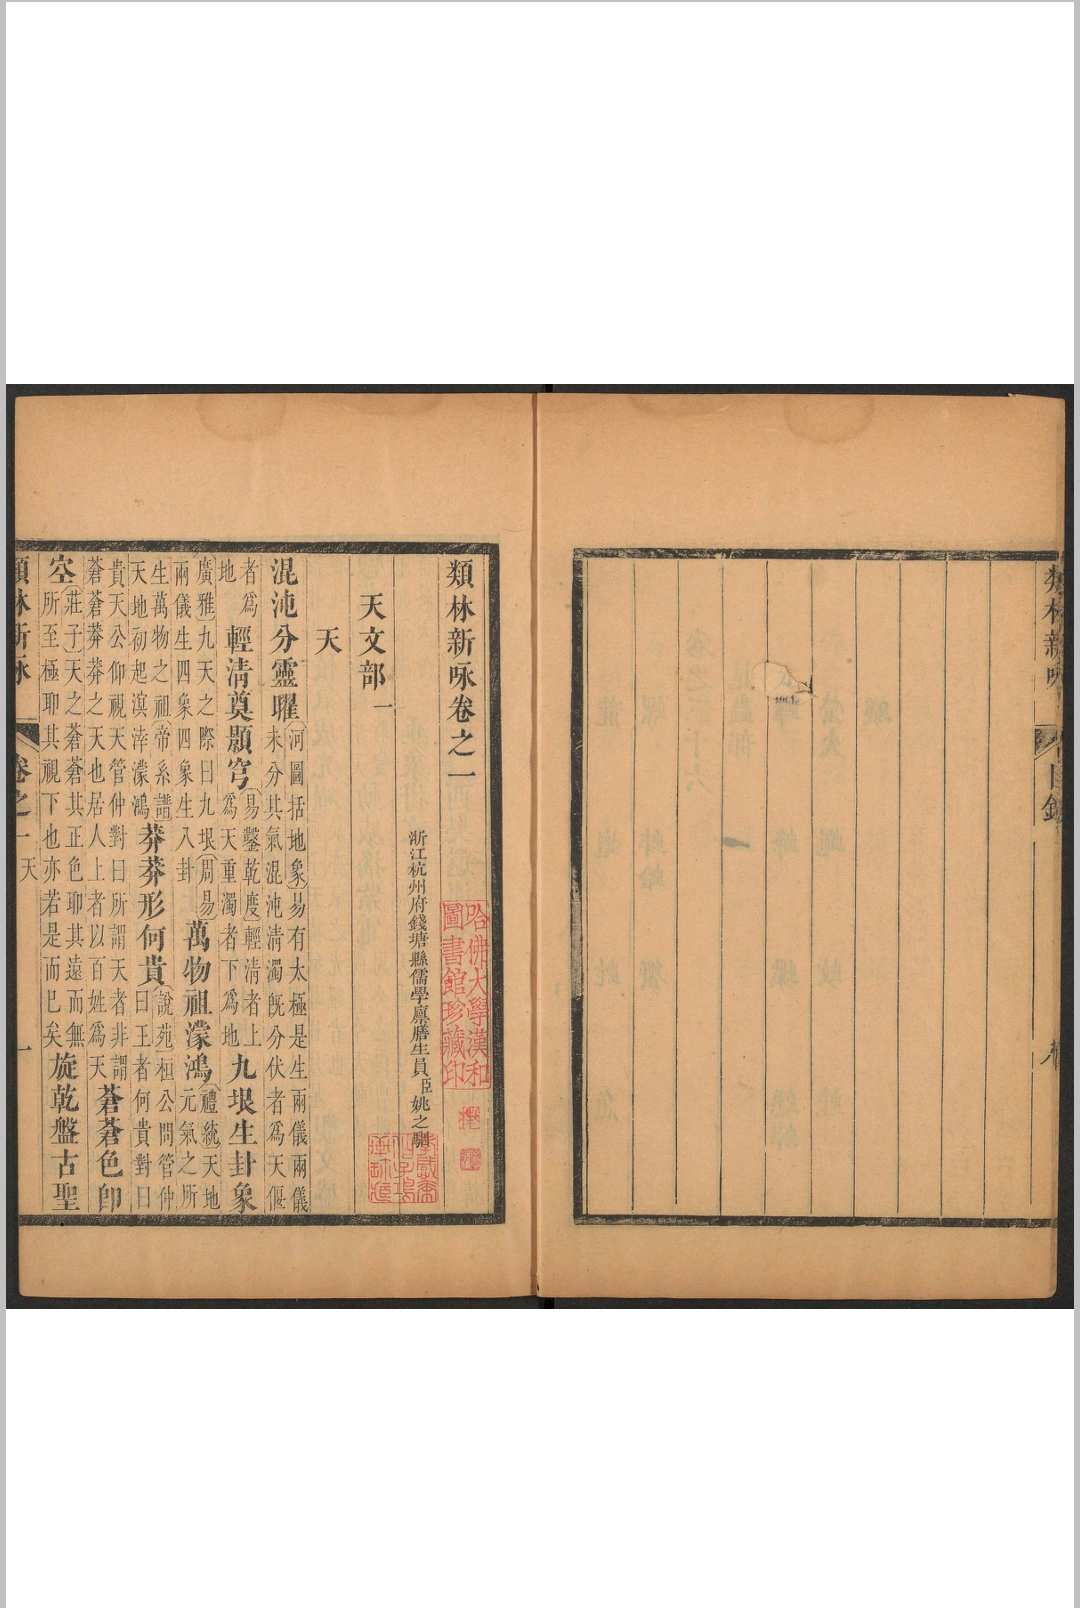 類林新咏
目錄
類林新咏卷之一
浙江杭州府錢塘縣儒學廩膳生員臣姚之駰
哈佛大學漢和圖書館珍藏印
天文部一
天
混沌分靈曜河圖括地象易有太極是生兩儀兩儀未分其氣混沌清濁旣分伏者爲天偃
者爲地輕清奠顥穹易鑿乾度輕清者上爲天重濁者下爲地九垠生卦象
廣雅九天之際曰九垠周易兩儀生四象四象生八卦萬物祖濛鴻禮統天地元氣之所
生萬物之祖帝系譜天地初起溟涬濛鴻莽莽形何貴說苑桓公問管仲曰王者何貴對曰
貴天公仰視天管仲對曰所謂天者非謂蒼蒼莽莽之天也居人上者以百姓爲天蒼蒼色卽
空莊子天之蒼蒼其正色耶其遠而無所至極耶其視下也亦若是而已矣旋乾盤古聖
類林新咏
卷之一
天
一